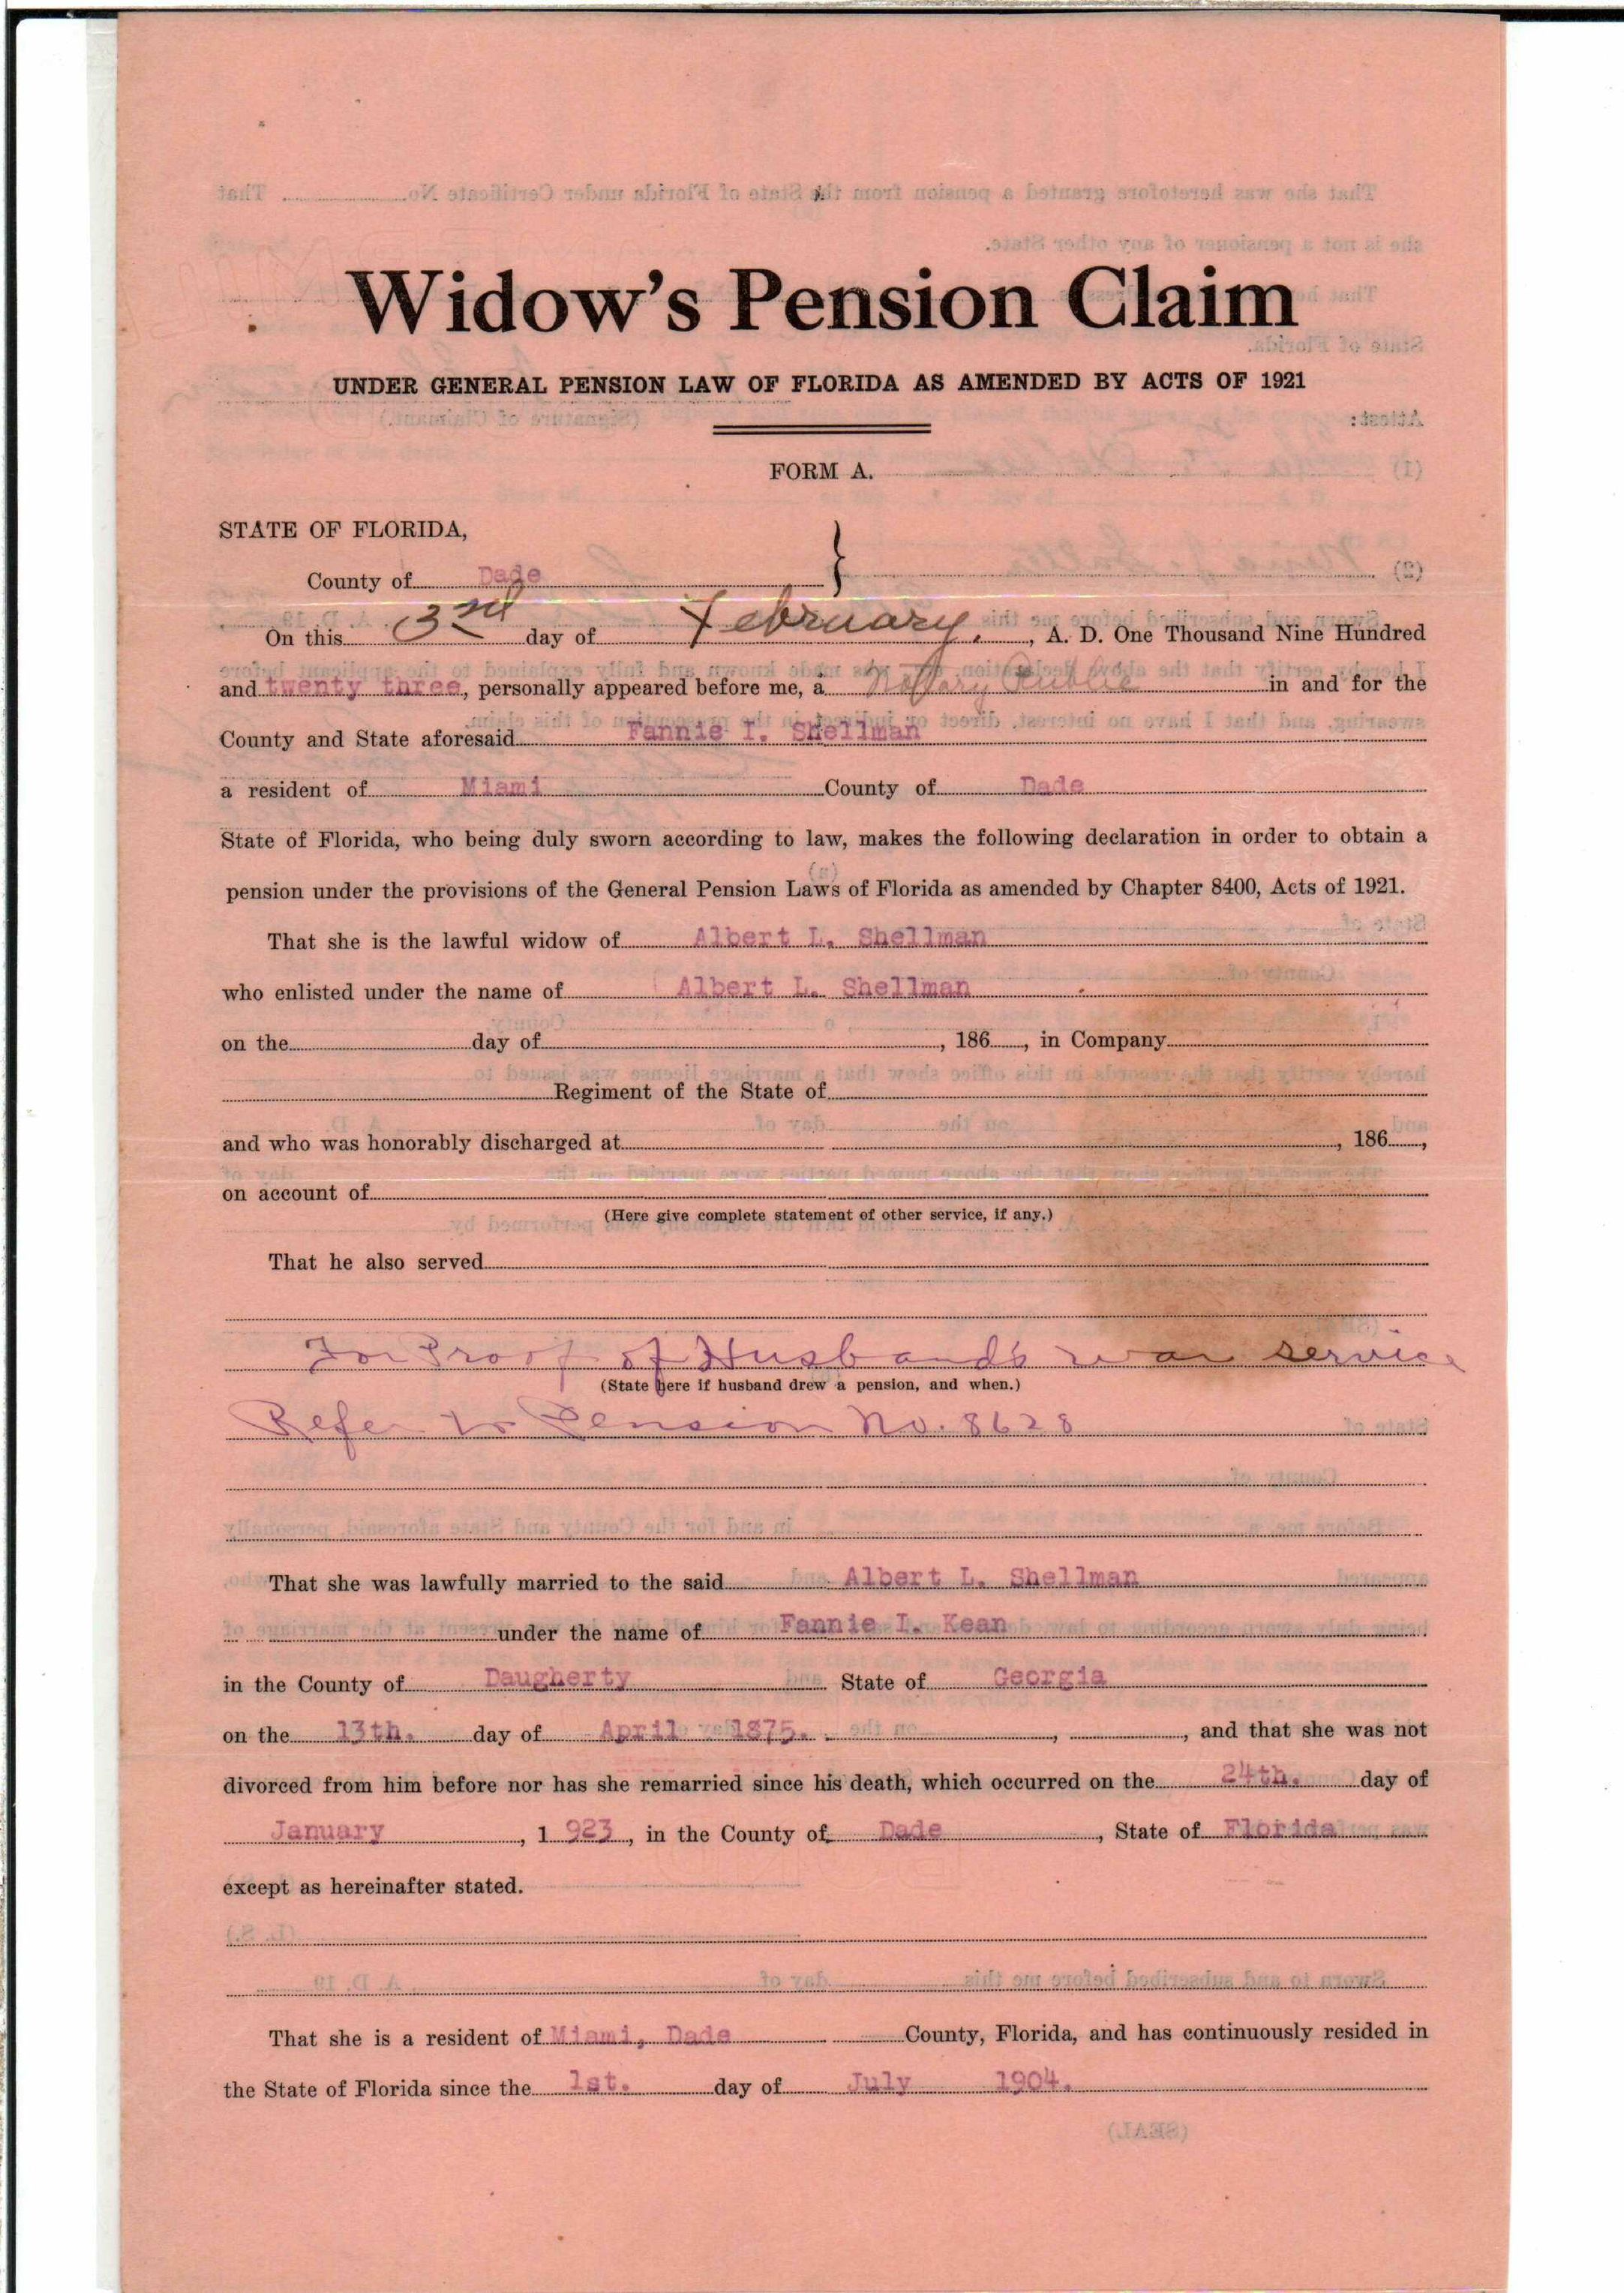 Widow's Pension Claim
UNDER GENERAL PENSION LAW OF FLORIDA AS AMENDED BY ACTS OF 1921
FORM A.
STATE OF FLORIDA,
County of Dade
On this 3rd day of February, A. D. One Thousand Nine Hundred
and twenty three, personally appeared before me, a Notary Public in and for the
County and State aforesaid Fannie I. Shellman
a resident of Miami County of Dade
State of Florida, who being duly sworn according to law, makes the following declaration in order to obtain a
pension under the provisions of the General Pension Laws of Florida as amended by Chapter 8400, Acts of 1921.
That she is the lawful widow of Albert L. Shellman
who enlisted under the name of Albert L. Shellman
on the day of , 186 , in Company
Regiment of the State of
and who was honorably discharged at , 186 ,
on account of
(Here give complete statement of other service, if any.)
That he also served
For Proof of Husband's war service
(State here if husband drew a pension, and when.)
Refer to Pension No. 8628
That she was lawfully married to the said Albert L. Shellman
under the name of Fannie I. Kean
in the County of Daugherty State of Georgia
on the 13th. day of April 1875. , , and that she was not
divorced from him before nor has she remarried since his death, which occurred on the 24th. day of
January , 1 923 , in the County of Dade , State of Florida
except as hereinafter stated.
That she is a resident of Miami, Dade County, Florida, and has continuously resided in
the State of Florida since the 1st. day of July 1904.